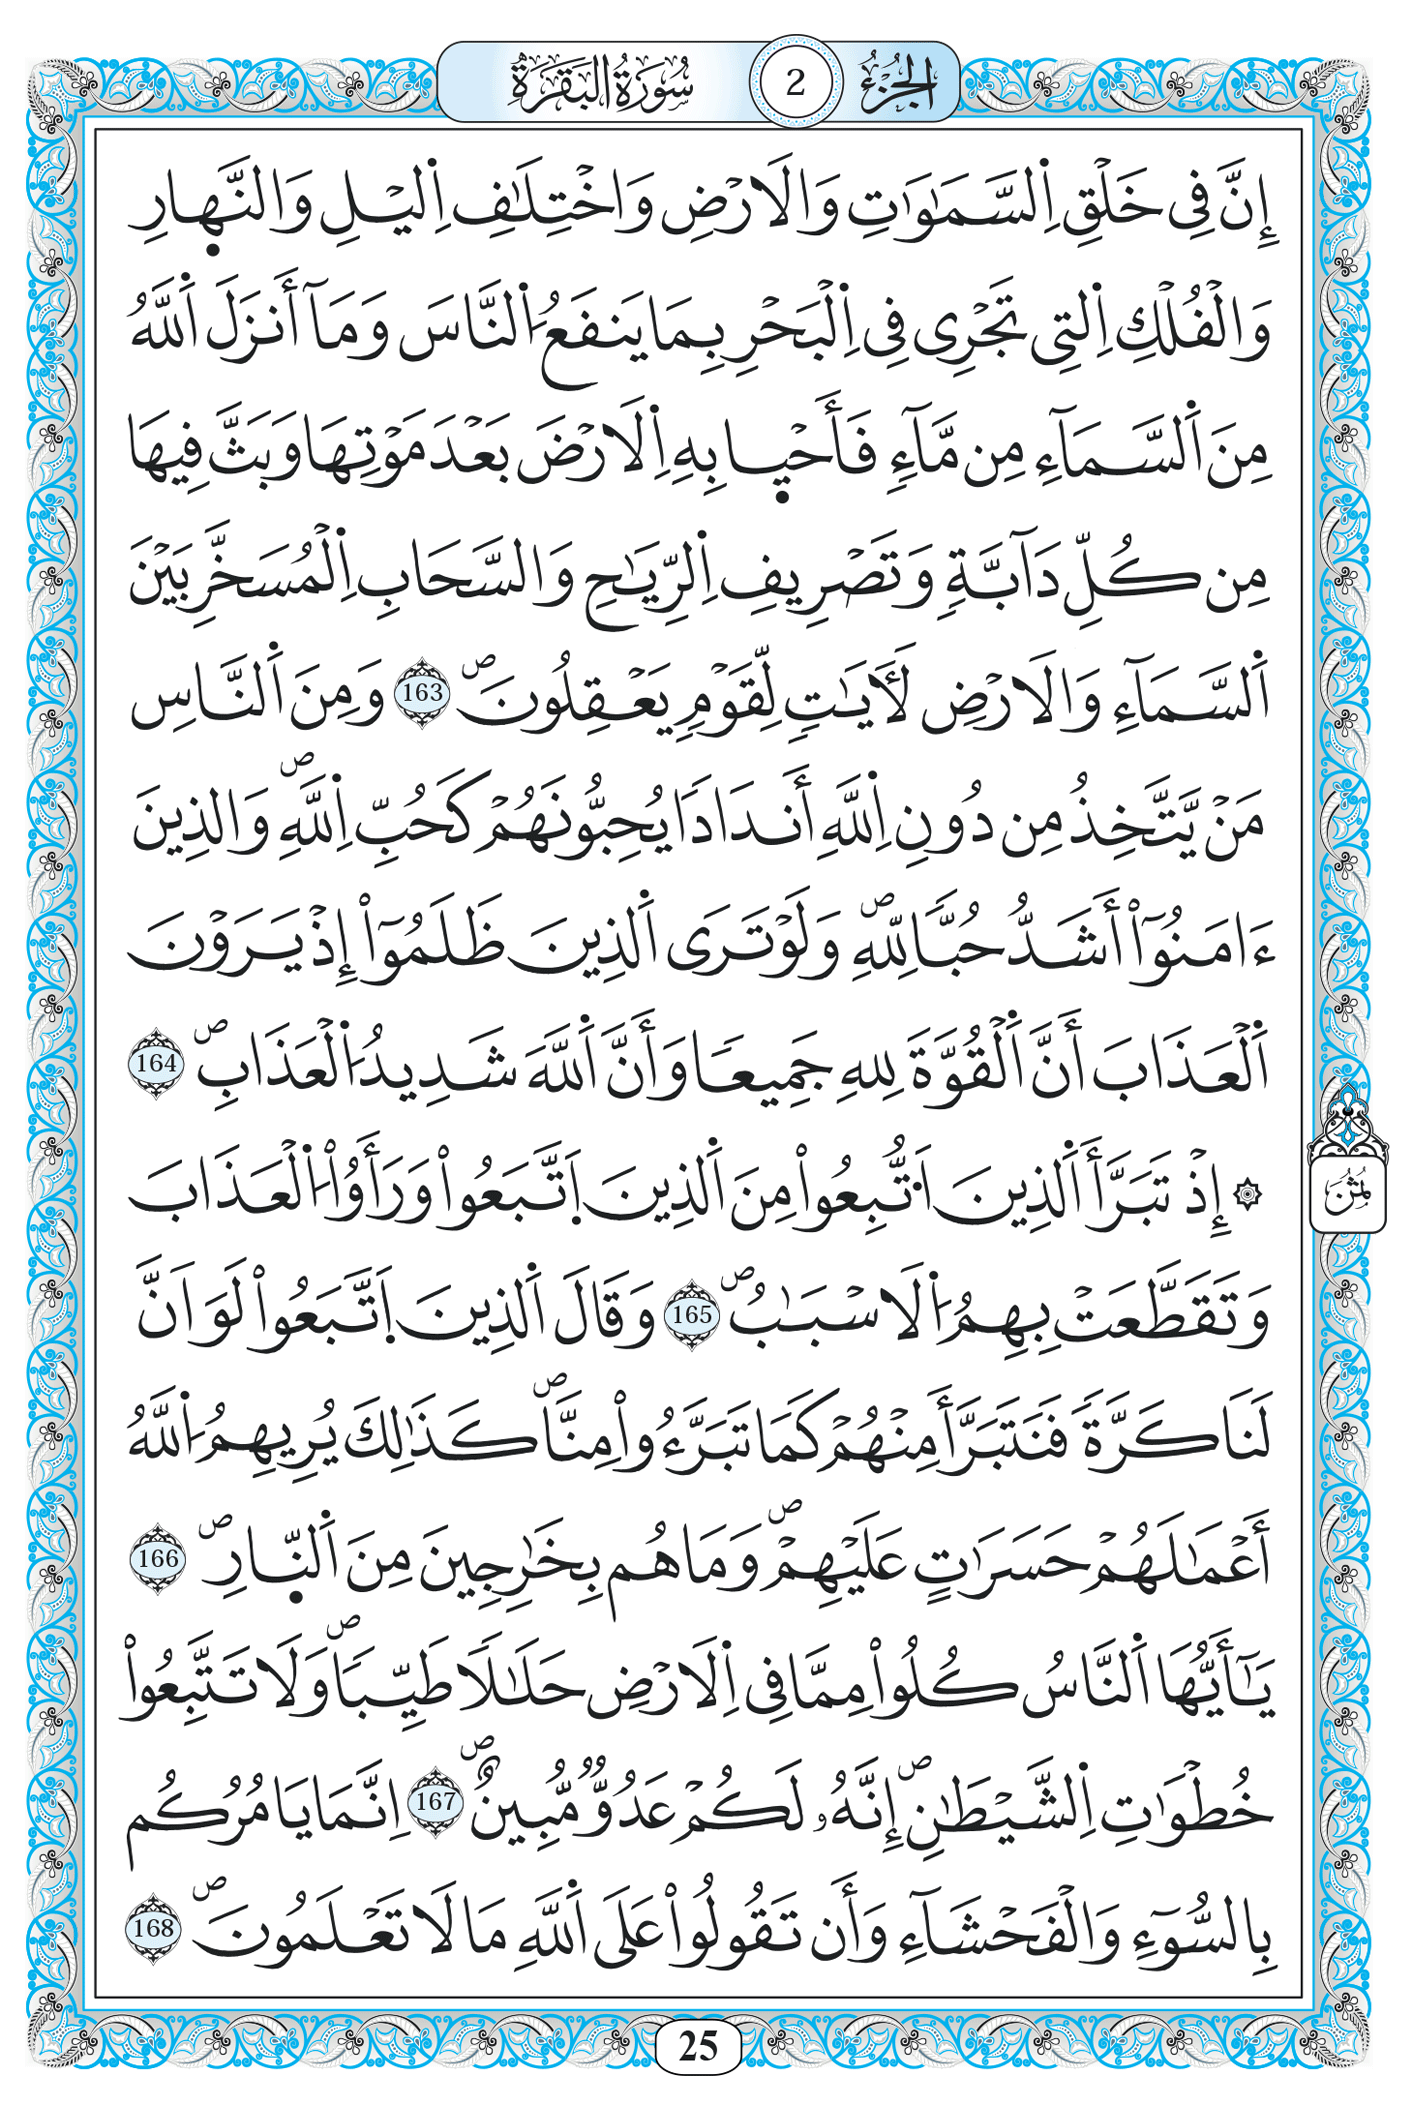 الجُزْءُ 2 سُورَةُ البَقَرَةِ
إِنَّ فِى خَلْقِ اِ۬لسَّمَٰوَٰتِ وَالَارْضِ وَاخْتِلَٰفِ اِ۬ليْلِ وَالنَّه۪ارِ
وَالْفُلْكِ اِ۬لتِى تَجْرِى فِى اِ۬لْبَحْرِ بِمَا يَنفَعُ اُ۬لنَّاسَ وَمَآ أَنزَلَ اَ۬للَّهُ
مِنَ اَ۬لسَّمَآءِ مِن مَّآءٖ فَأَحْي۪ا بِهِ اِ۬لَارْضَ بَعْدَ مَوْتِهَا وَبَثَّ فِيهَا
مِن كُلِّ دَآبَّةٖ وَتَصْرِيفِ اِ۬لرِّيَٰحِ وَالسَّحَابِ اِ۬لْمُسَخَّرِ بَيْنَ
اَ۬لسَّمَآءِ وَالَارْضِ لَأٓيَٰتٖ لِّقَوْمٖ يَعْقِلُونَۖ 163 وَمِنَ اَ۬لنَّاسِ
مَنْ يَّتَّخِذُ مِن دُونِ اِ۬للَّهِ أَندَاداٗ يُحِبُّونَهُمْ كَحُبِّ اِ۬للَّهِۖ وَالذِينَ
ءَامَنُوٓاْ أَشَدُّ حُبّاٗ لِّلهِۖ وَلَوْ تَرَى اَ۬لذِينَ ظَلَمُوٓاْ إِذْ يَرَوْنَ
اَ۬لْعَذَابَ أَنَّ اَ۬لْقُوَّةَ لِلهِ جَمِيعاٗ وَأَنَّ اَ۬للَّهَ شَدِيدُ اُ۬لْعَذَابِۖ 164
۞ إِذْ تَبَرَّأَ اَ۬لذِينَ اَ۟تُّبِعُواْ مِنَ اَ۬لذِينَ اَ۪تَّبَعُواْ وَرَأَوُاْ اُ۬لْعَذَابَ
وَتَقَطَّعَتْ بِهِمُ اُ۬لَاسْبَٰبُۖ 165 وَقَالَ اَ۬لذِينَ اَ۪تَّبَعُواْ لَوَ اَنَّ
لَنَا كَرَّةٗ فَنَتَبَرَّأَ مِنْهُمْ كَمَا تَبَرَّءُواْ مِنَّاۖ كَذَٰلِكَ يُرِيهِمُ اُ۬للَّهُ
أَعْمَٰلَهُمْ حَسَرَٰتٍ عَلَيْهِمْۖ وَمَا هُم بِخَٰرِجِينَ مِنَ اَ۬لنّ۪ارِۖ 166
يَٰٓأَيُّهَا اَ۬لنَّاسُ كُلُواْ مِمَّا فِى اِ۬لَارْضِ حَلَٰلاٗ طَيِّباٗۖ وَلَا تَتَّبِعُواْ
خُطْوَٰتِ اِ۬لشَّيْطَٰنِۖ إِنَّهُۥ لَكُمْ عَدُوّٞ مُّبِينٌۖ 167 اِنَّمَا يَامُرُكُم
بِالسُّوٓءِ وَالْفَحْشَآءِ وَأَن تَقُولُواْ عَلَى اَ۬للَّهِ مَا لَا تَعْلَمُونَۖ 168
ثُمُن
25